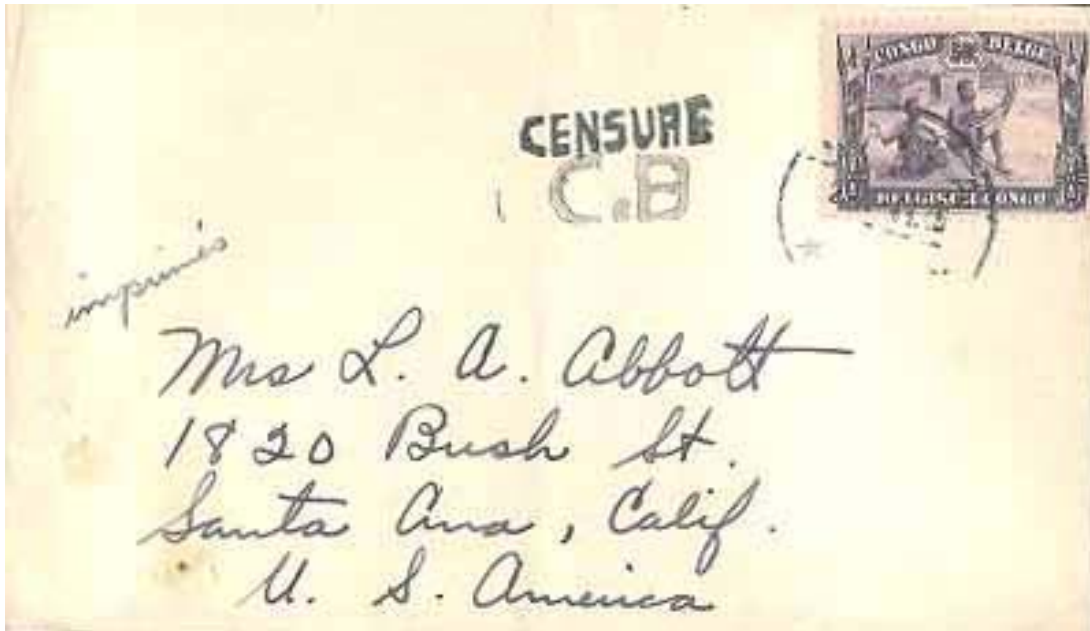 CONGO BELGE
BELGISCH CONGO
CENSURE
C.B
imprimés
Mrs L. A. Abbott
1820 Bush St.
Santa Ana, Calif.
U. S. America